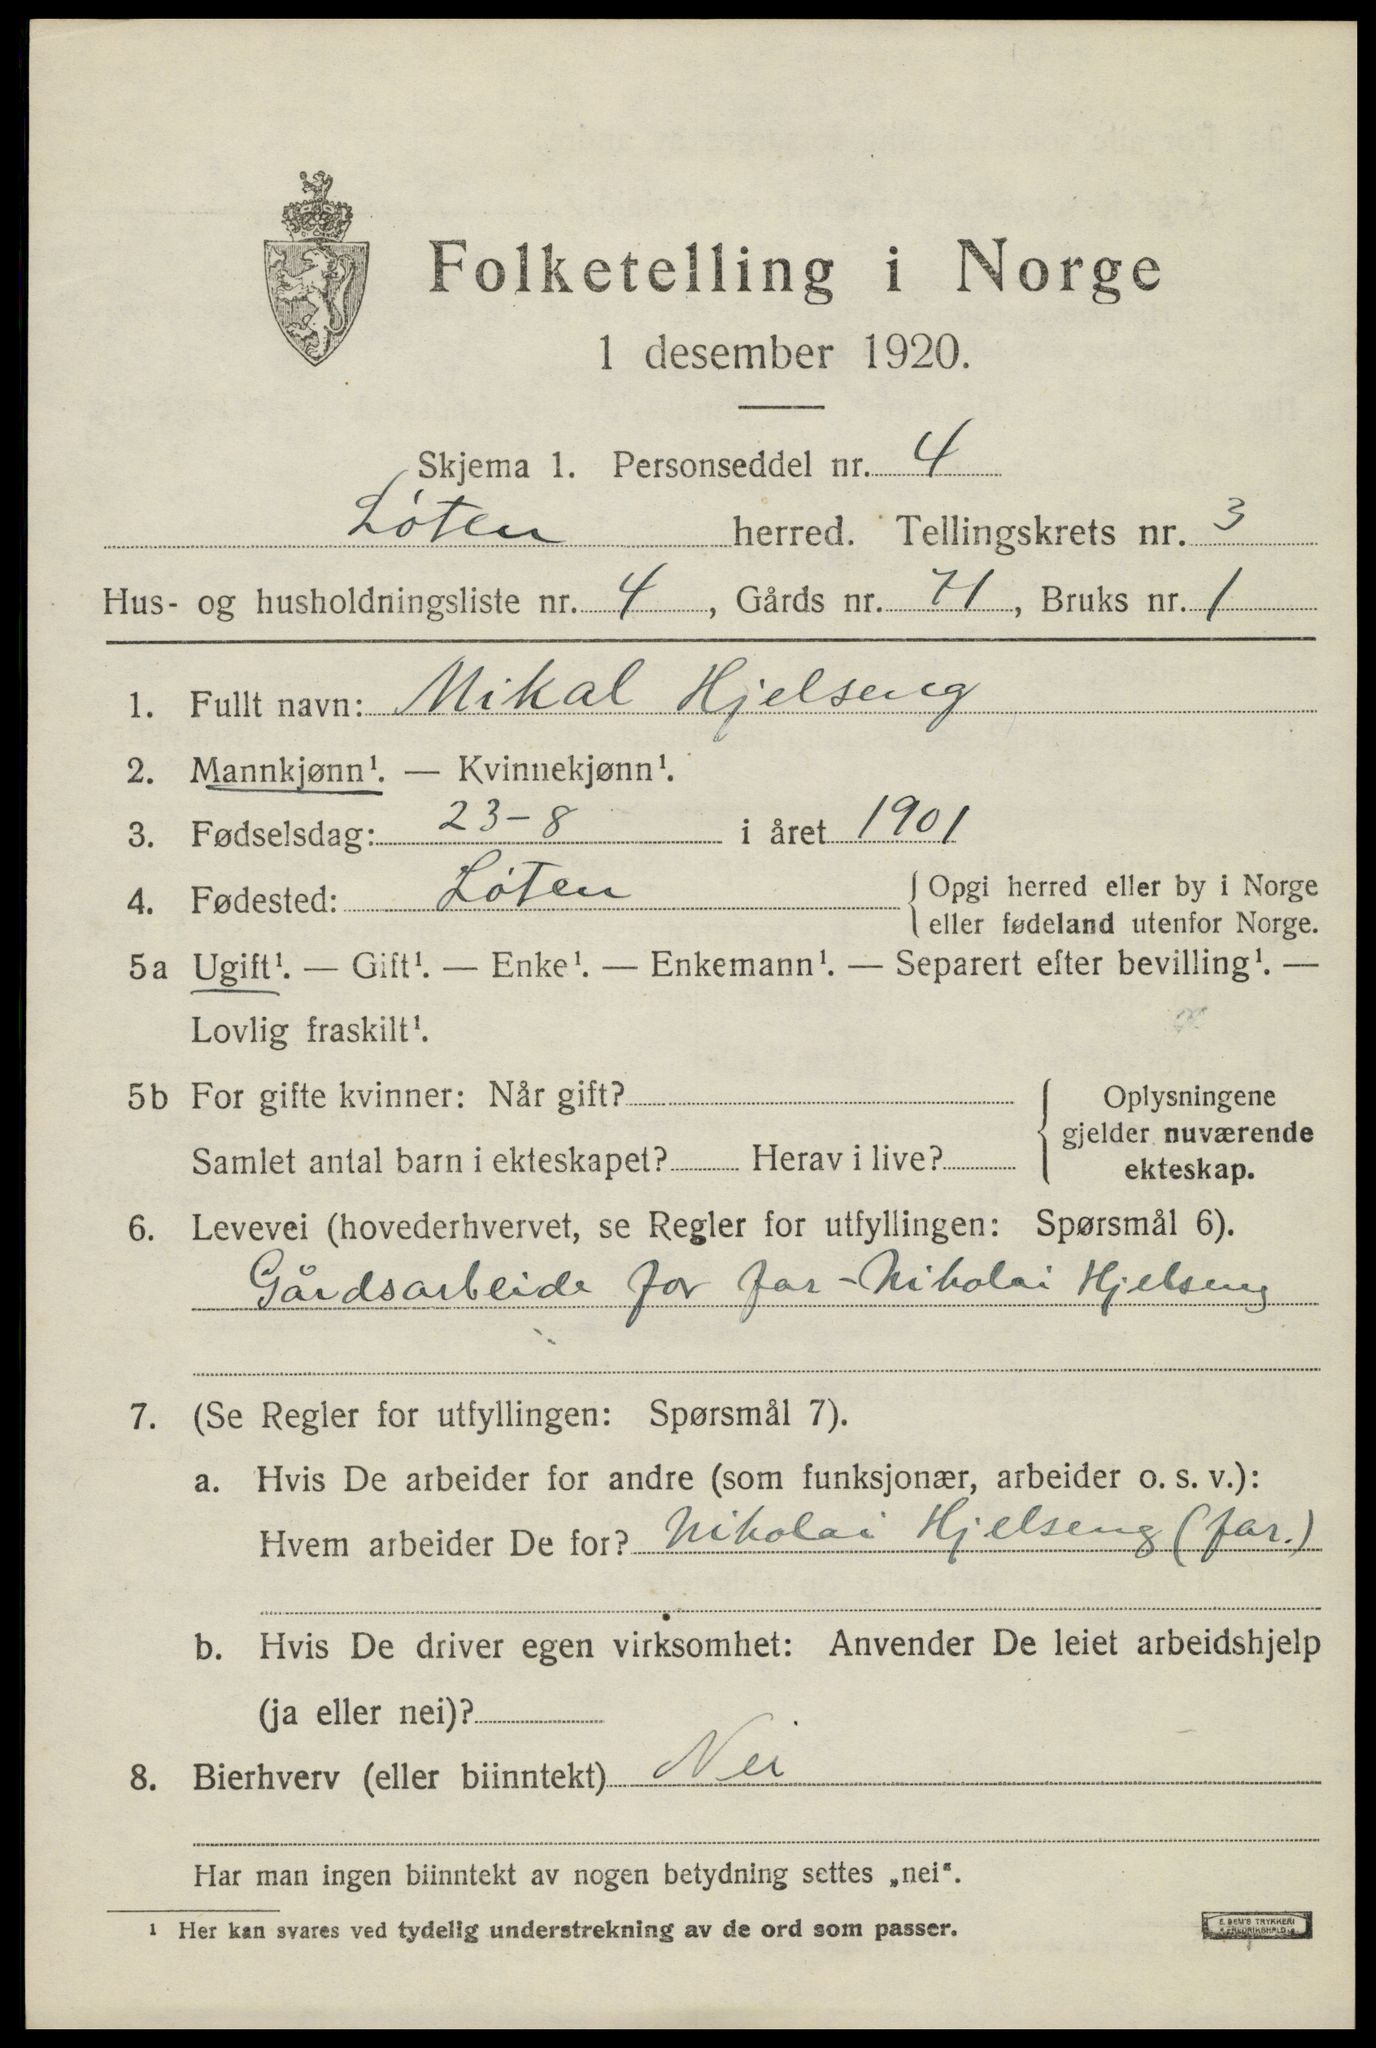 Folketelling i Norge
1 desember 1920.
Skjema 1. Personseddel nr. 4
Løten herred. Tellingskrets nr. 3
Hus- og husholdningsliste nr. 4, Gårds nr. 71, Bruks nr. 1
1. Fullt navn: Mikal Hjelseng
2. Mannkjønn¹. — Kvinnekjønn¹.
3. Fødselsdag: 23-8 i året 1901
4. Fødested: Løten { Opgi herred eller by i Norge
eller fødeland utenfor Norge.
5a Ugift¹. — Gift¹. — Enke¹. — Enkemann¹. — Separert efter bevilling¹. —
Lovlig fraskilt¹.
5b For gifte kvinner: Når gift?
Samlet antal barn i ekteskapet? Herav i live?
{ Oplysningene
gjelder nuværende
ekteskap.
6. Levevei (hovederhvervet, se Regler for utfyllingen: Spørsmål 6).
Gårdsarbeide for far - Nikolai Hjelseng
7. (Se Regler for utfyllingen: Spørsmål 7).
a. Hvis De arbeider for andre (som funksjonær, arbeider o. s. v.):
Hvem arbeider De for? Nikolai Hjelseng (far.)
b. Hvis De driver egen virksomhet: Anvender De leiet arbeidshjelp
(ja eller nei)?
8. Bierhverv (eller biinntekt) Nei
Har man ingen biinntekt av nogen betydning settes „nei“.
¹ Her kan svares ved tydelig understrekning av de ord som passer.